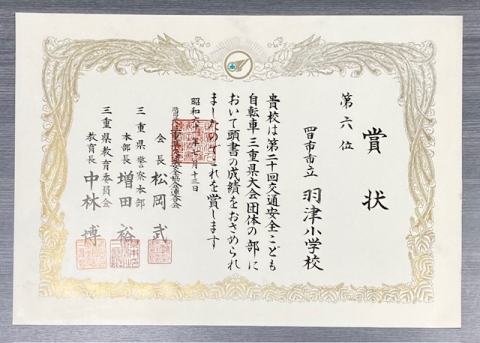 賞状
第六位
四日市市立 羽津小学校
貴校は第二十回交通安全こども
自転車三重県大会団体の部に
おいて頭書の成績をおさめられ
ましたのでこれを賞します
昭和
会長 松岡 武
三重県警察本部
本部長 増田 裕
三重県教育委員会
教育長 中林 博